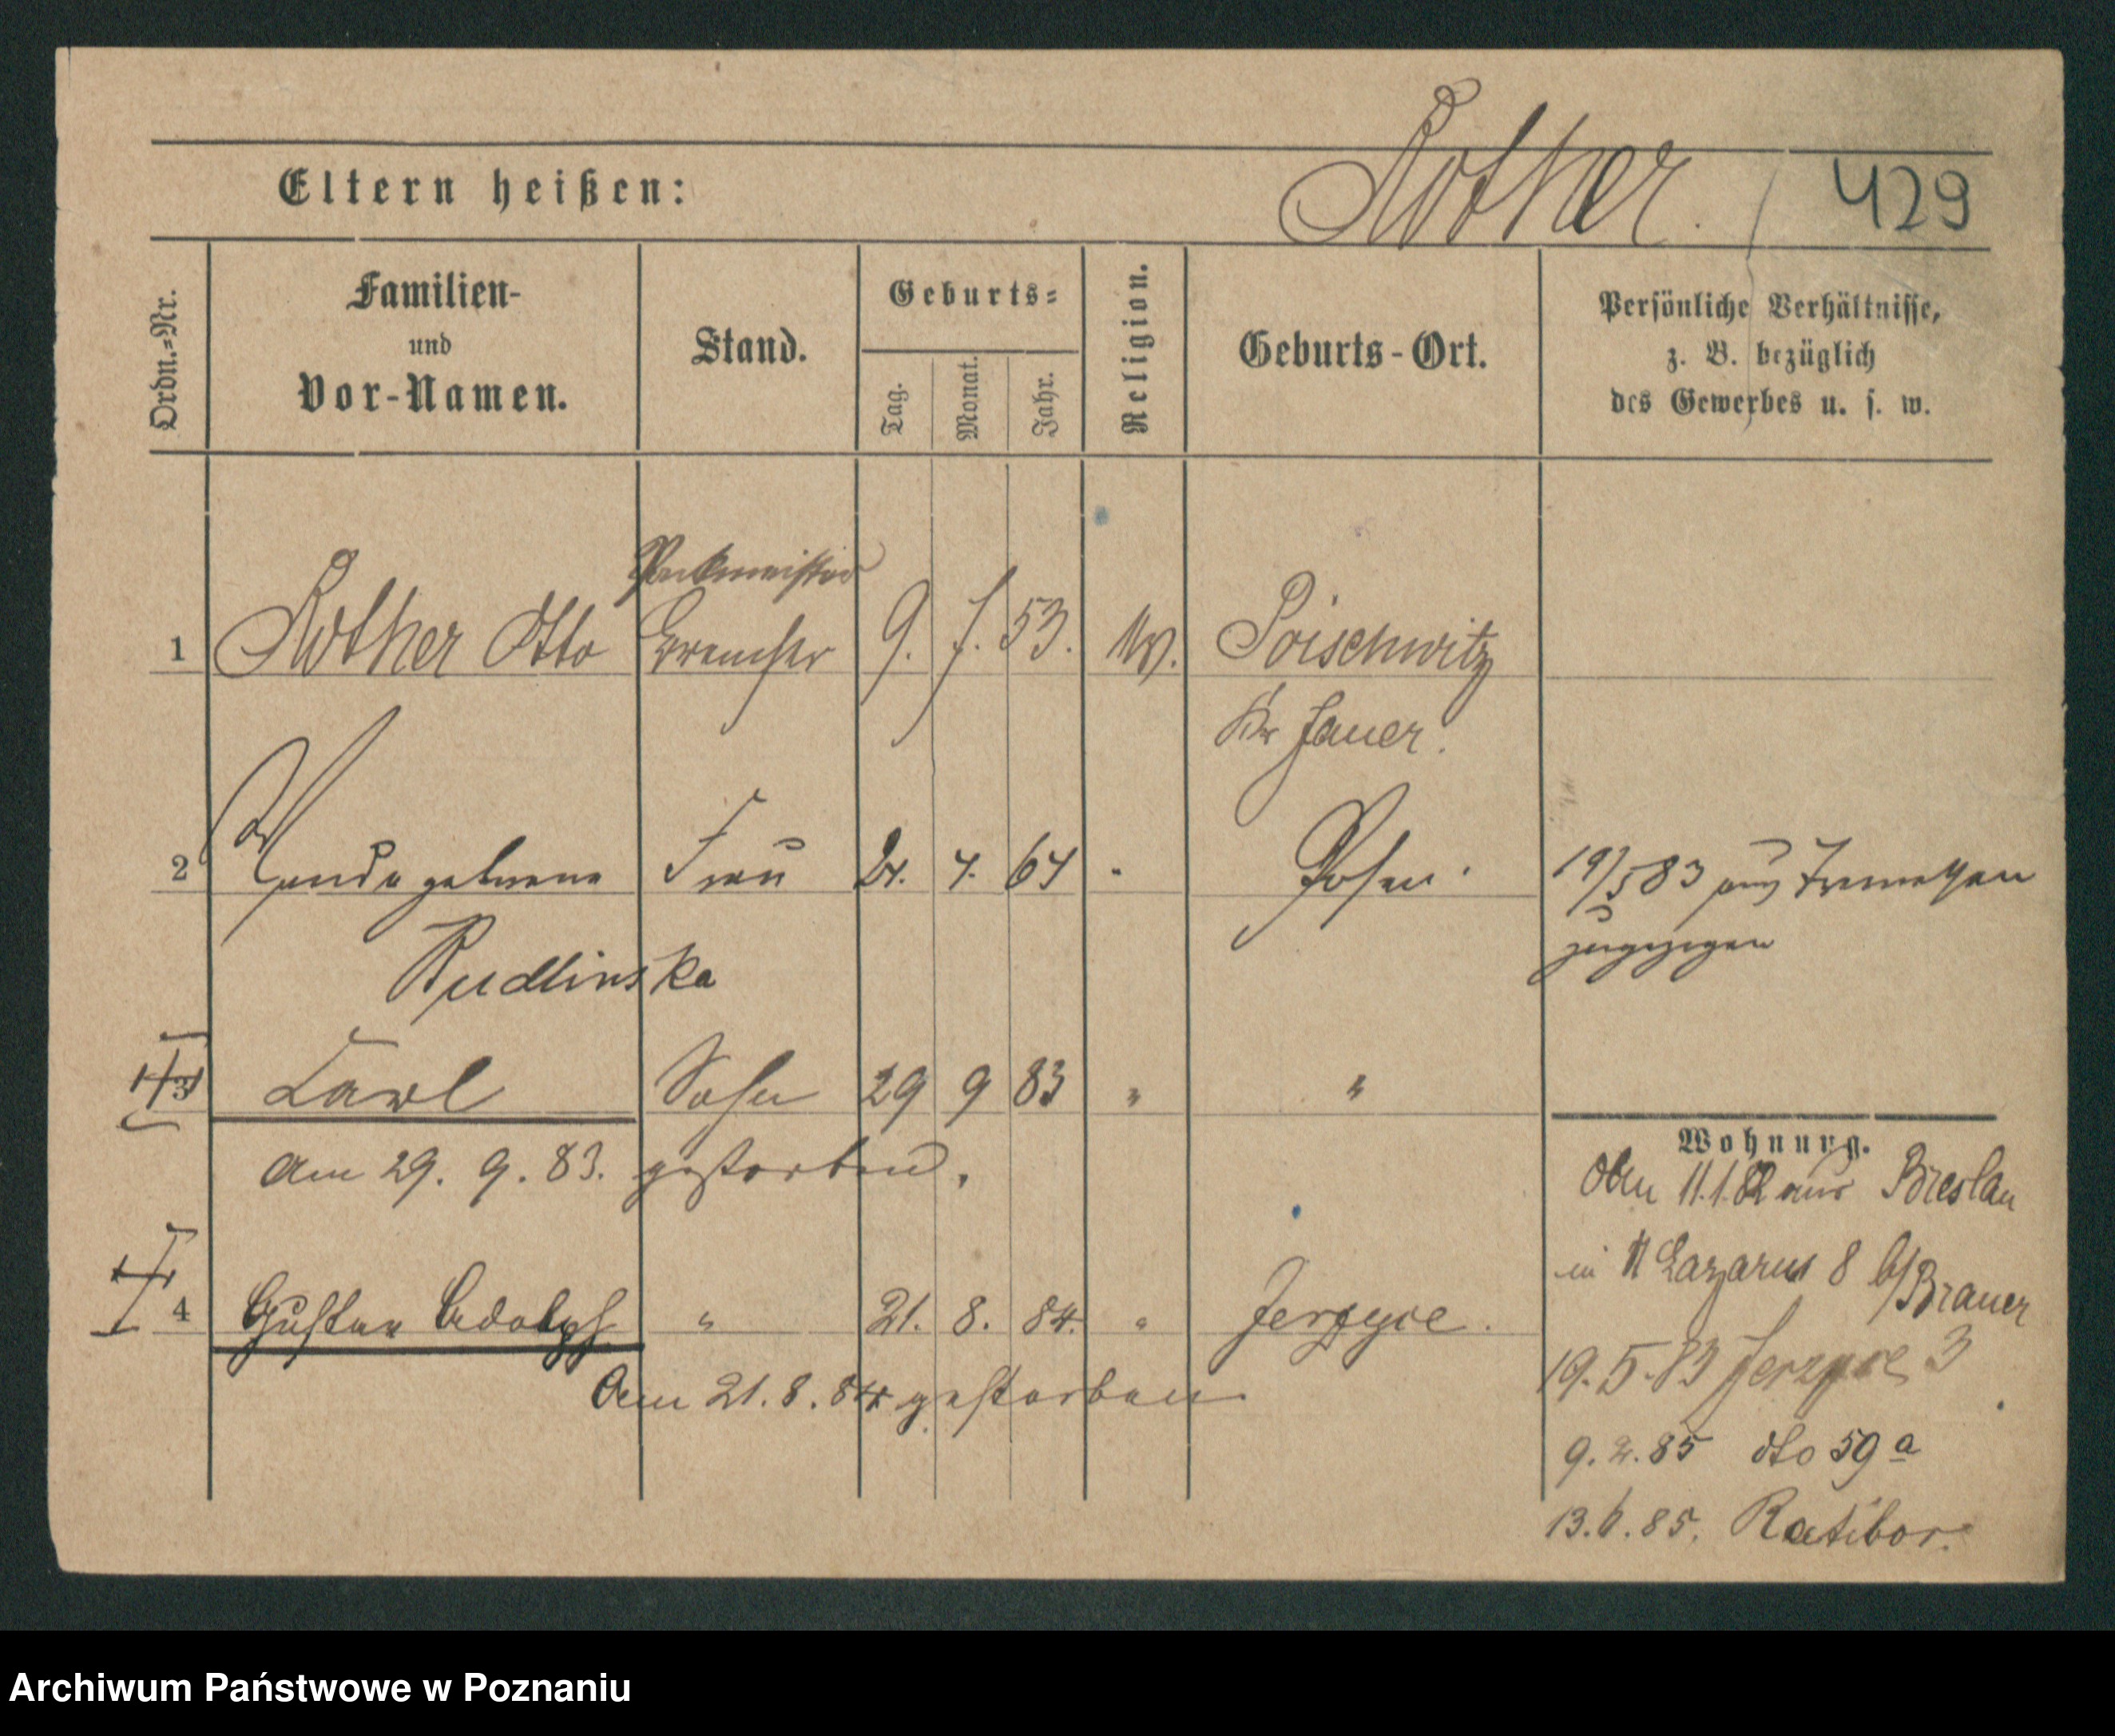 Eltern heißen: Rother. 429
Ordn.-Nr.
Familien-
und
Vor-Namen.
Stand.
Geburts-
Tag.
Monat.
Jahr.
Religion.
Geburts-Ort.
Persönliche Verhältnisse,
z. B. bezüglich
des Gewerbes u. s. w.
Packmeister
1 Rother Otto Bremser 9. 7. 53. ev. Poischwitz
Kr Jauer.
2 Wanda geborene Frau 4. 64 " Posen. 19/5 83 aus Tremessen
Rudlinska zugezogen
3 Karl Sohn 29 9 83 " "
Am 29. 9. 83. gestorben.
4 Gustav Adolph " 21. 8. 84. " Jerzyce.
Am 21. 8. 84 gestorben
Wohnung.
11.1.82 aus Breslau
in St Lazarus 8 b/Brauer
19.5.83 Jerzyce 3
9.2.85 dto 59 a
13.6.85. Ratibor.
Archiwum Państwowe w Poznaniu